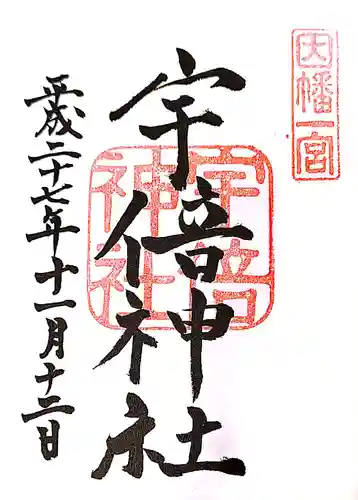 因幡一宮
宇倍神社
宇倍神社
平成二十七年十一月十二日